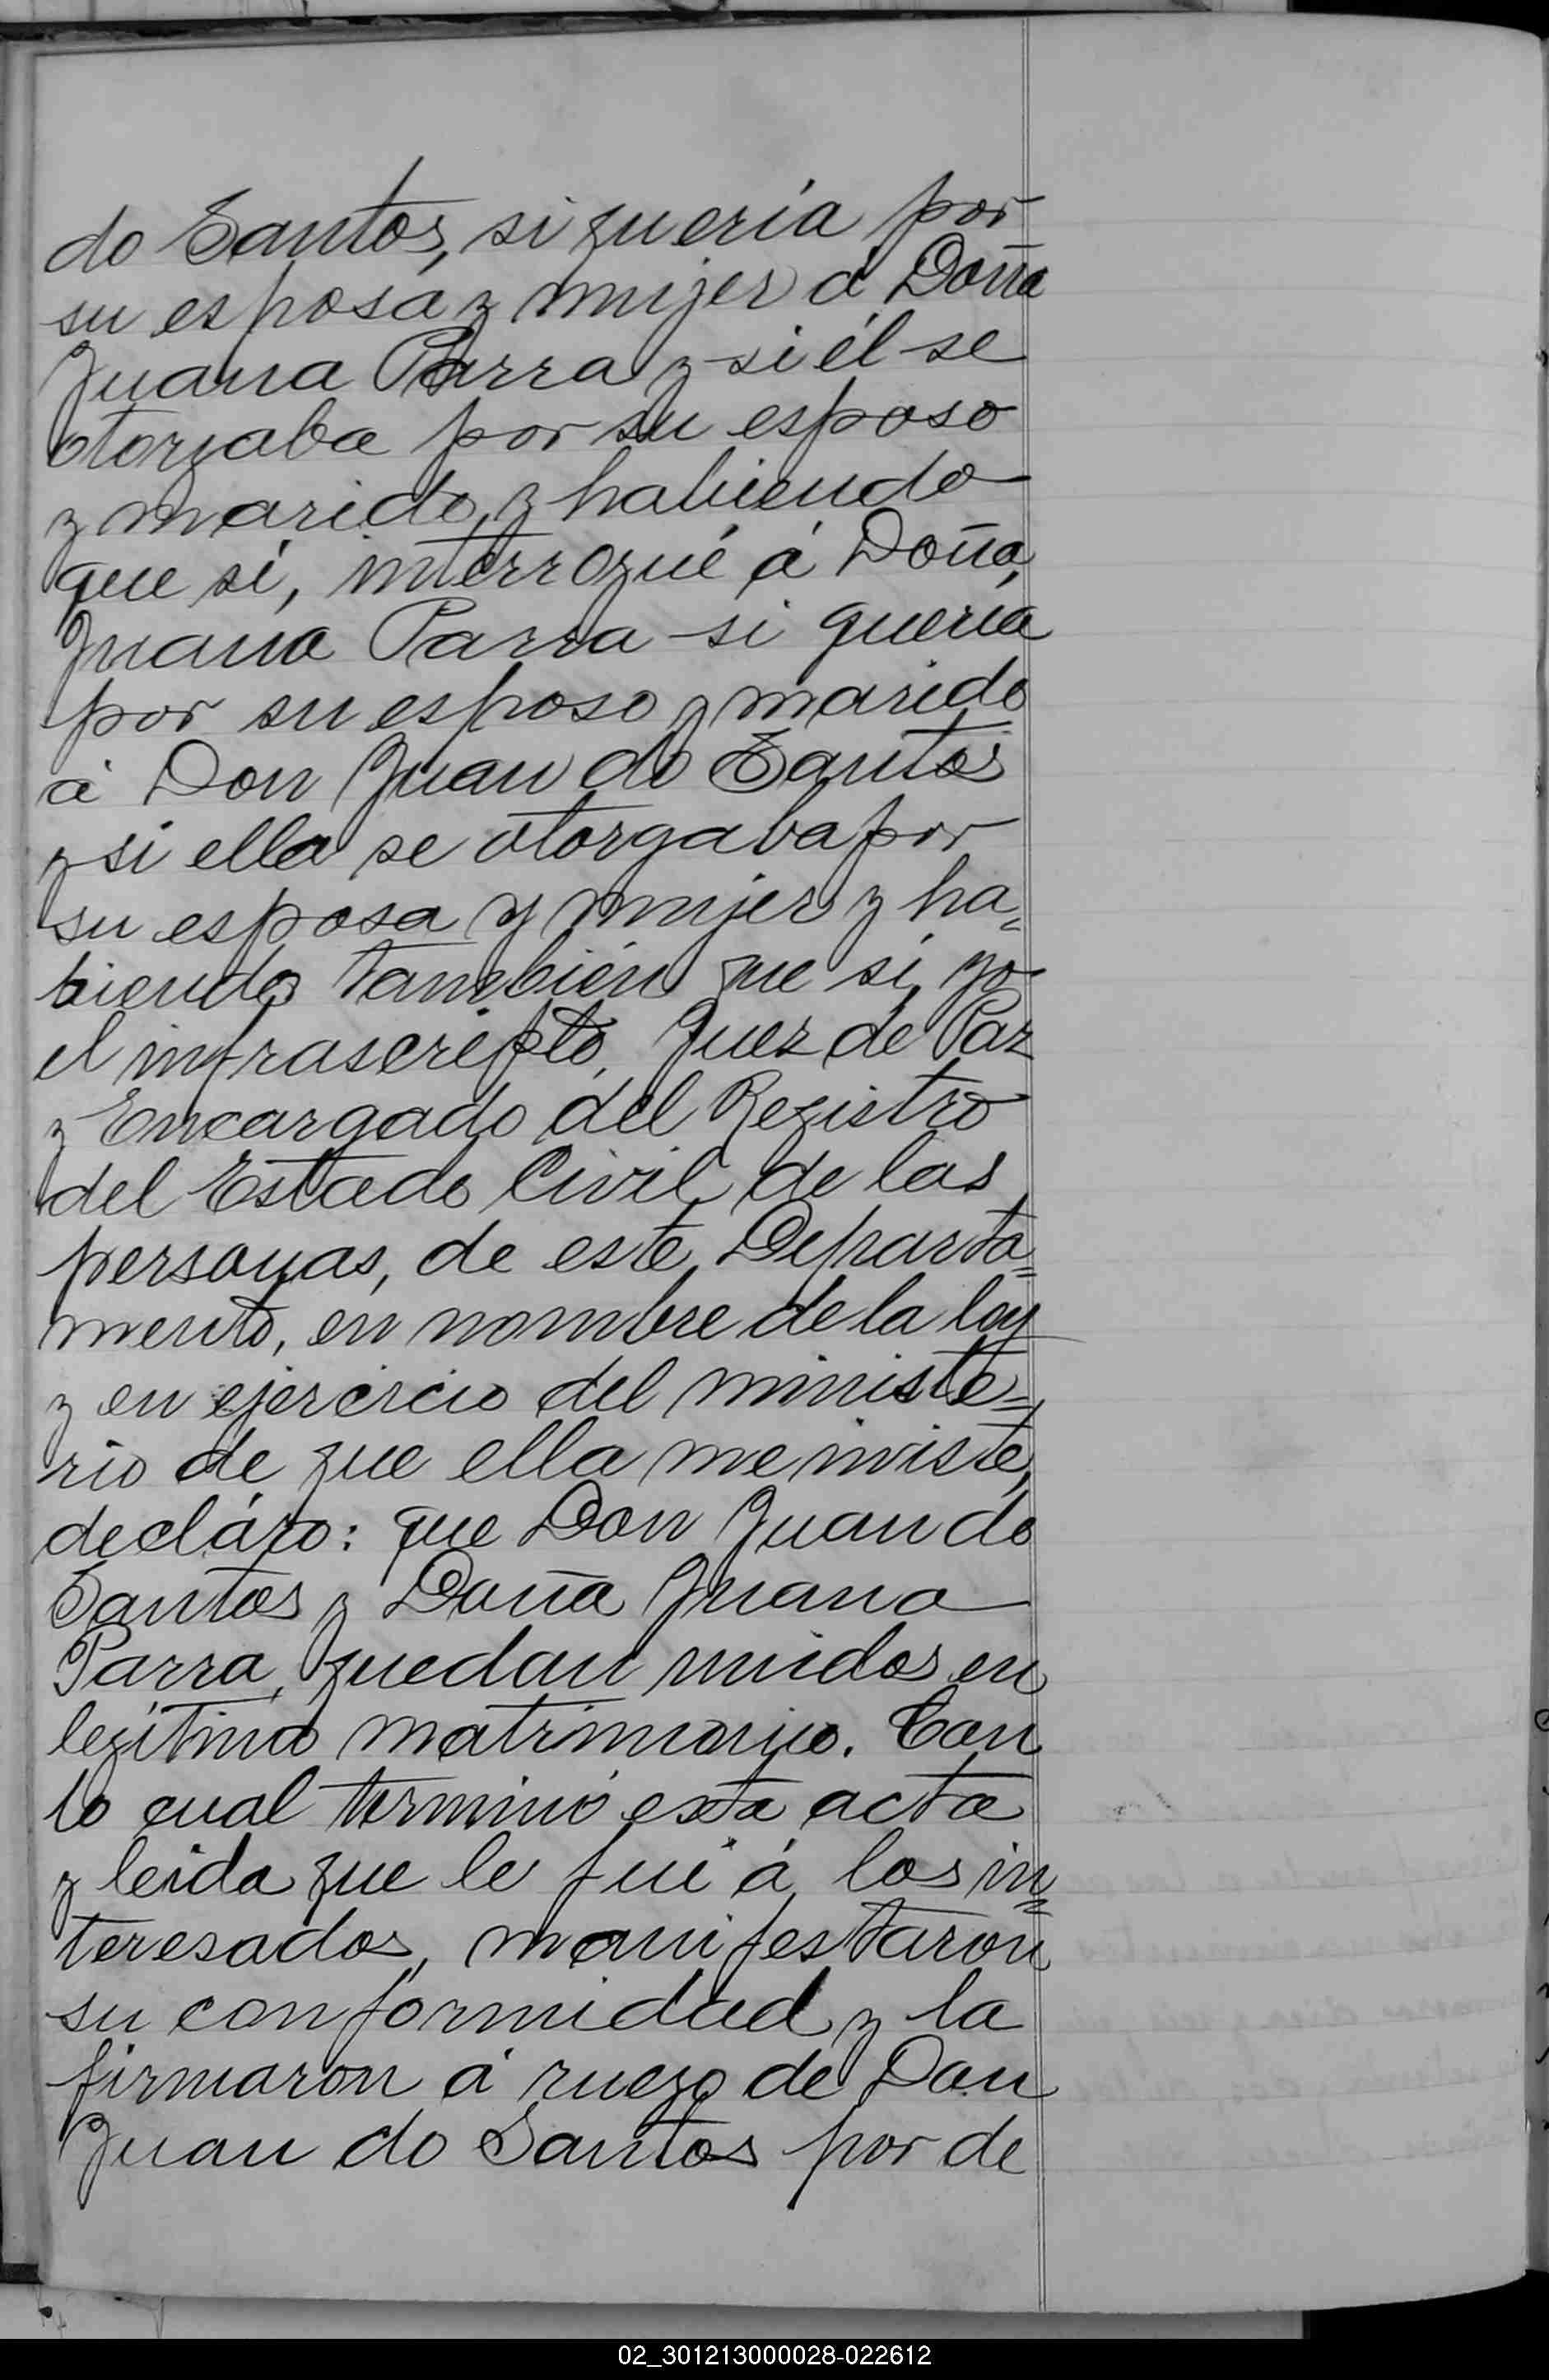 do Santos, si quería por
su esposa y mujer á Doña
Juana Parra y si él se
otorgaba por su esposo
y marido, y habiendo
que sí, interrogué á Doña,
Juana Parra si quería
por su esposo y marido
á Don Juan do Santos
y si ella se otorgaba por
su esposa y mujer y ha=
biendo también que sí, yo
el infrascripto, Juez de Paz
y Encargado del Registro
del Estado Civil de las
personas, de este Departa=
mento, en nombre de la ley
y en ejercicio del ministe=
rio de que ella me inviste,
decláro: que Don Juan do
Santos y Doña Juana
Parra, quedan unidos en
legítimo matrimonio. Con
lo cual terminó esta acta
y leida que le fué á los in=
teresados, manifestaron
su conformidad y la
firmaron á ruego de Don
Juan do Santos por de
02_301213000028-022612